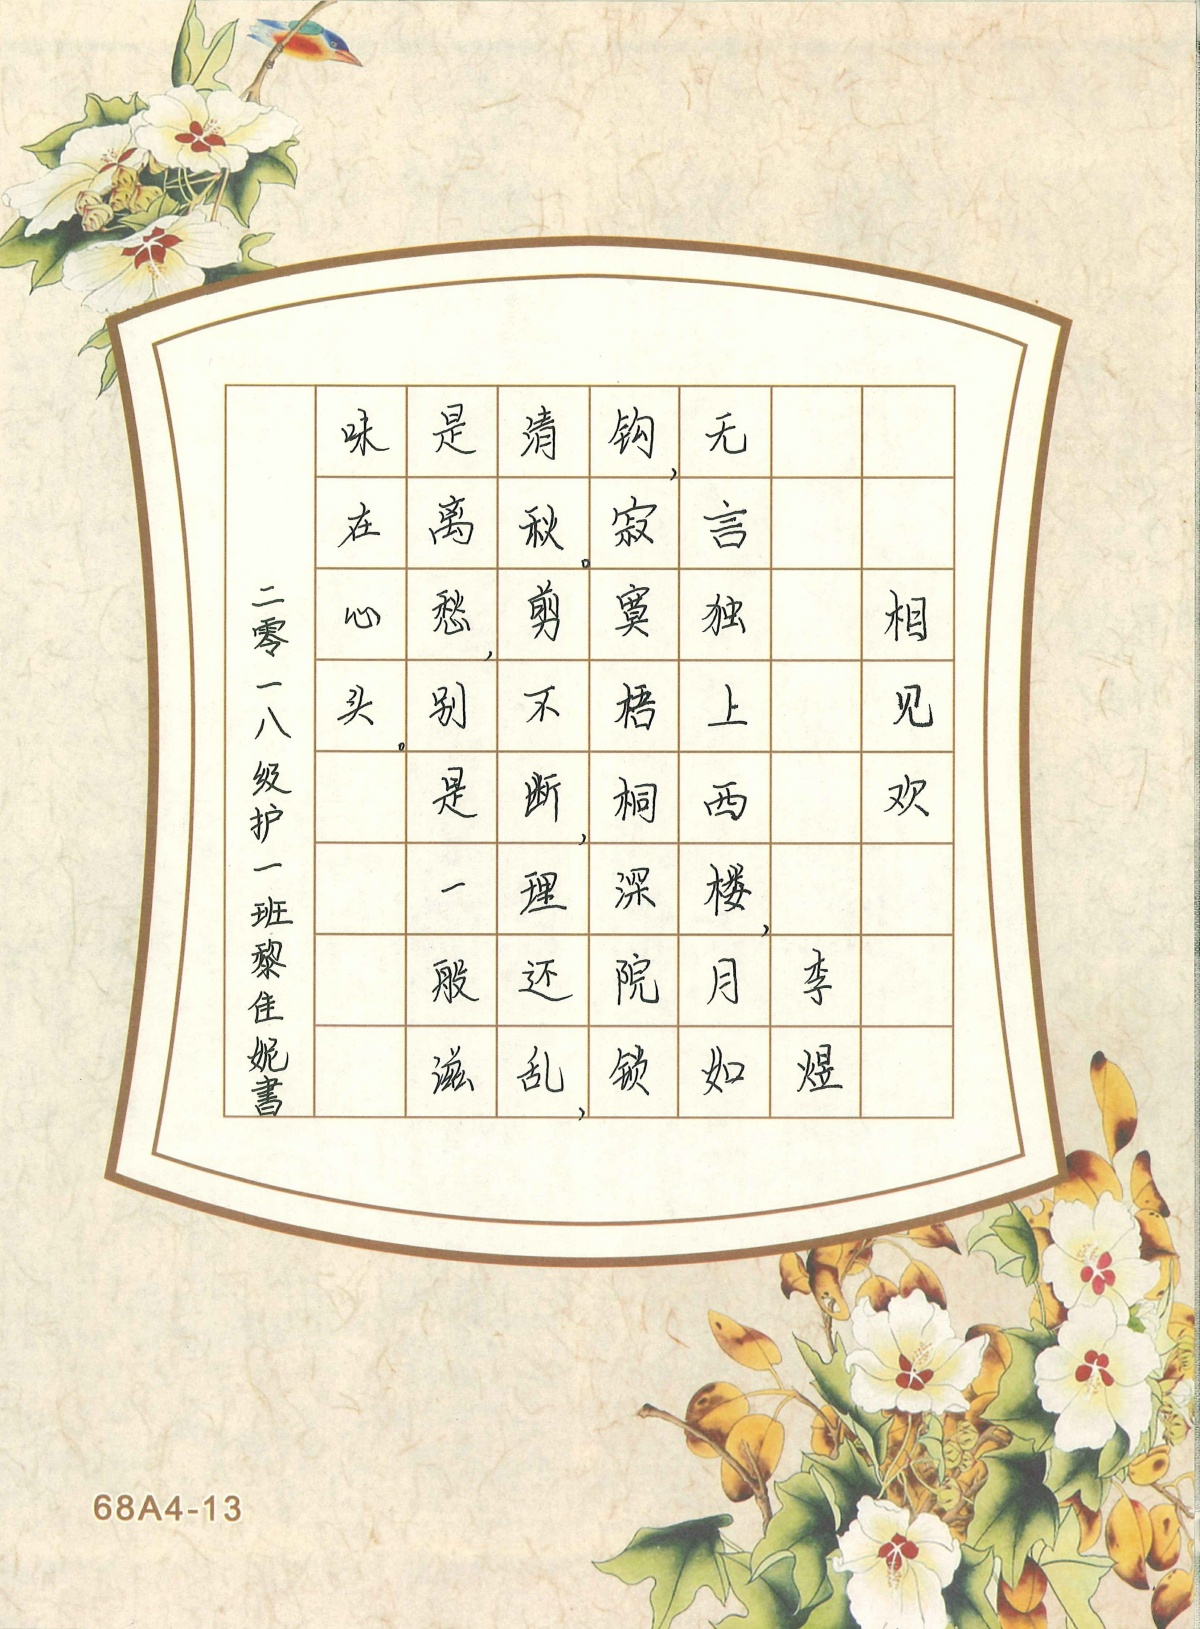 相见欢
李煜
无言独上西楼,月如
钩,寂寞梧桐深院锁
清秋。剪不断,理还乱,
是离愁,别是一般滋
味在心头。
二零一八级护一班黎佳妮書
68A4-13